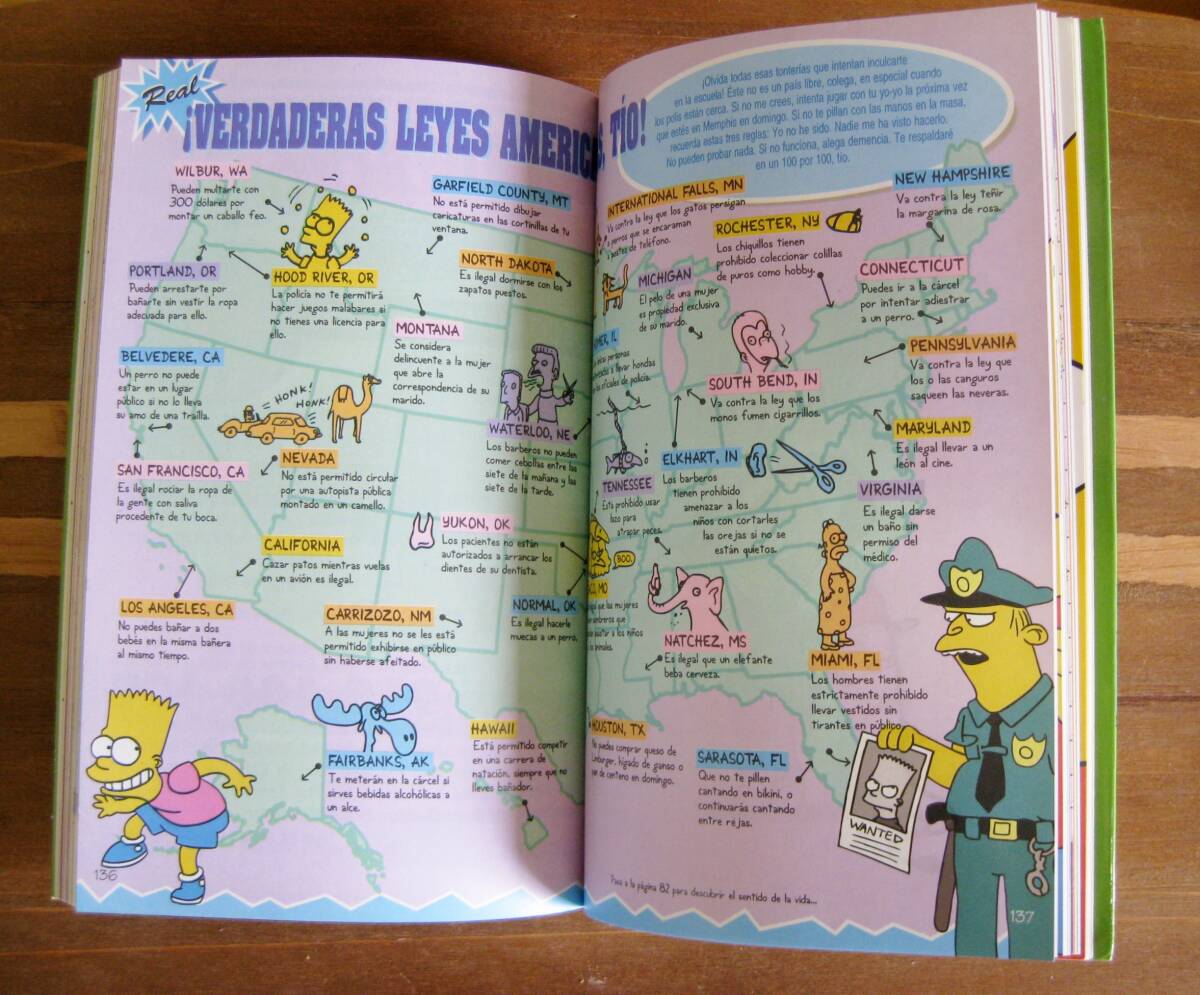 Real
¡VERDADERAS LEYES AMERIC S, TÍO!
¡Olvida todas esas tonterías que intentan inculcarte
en la escuela! Éste no es un país libre, colega, en especial cuando
los polis están cerca. Si no me crees, intenta jugar con tu yo-yo la próxima vez
que estés en Memphis en domingo. Si no te pillan con las manos en la masa,
recuerda estas tres reglas: Yo no he sido. Nadie me ha visto hacerlo.
No pueden probar nada. Si no funciona, alega demencia. Te respaldaré
en un 100 por 100, tío.
WILBUR, WA
Pueden multarte con
300 dólares por
montar un caballo feo.
GARFIELD COUNTY, MT
No está permitido dibujar
caricaturas en las cortinillas de tu
ventana.
PORTLAND, OR
Pueden arrestarte por
bañarte sin vestir la ropa
adecuada para ello.
HOOD RIVER, OR
La policía no te permitirá
hacer juegos malabares si
no tienes una licencia para
ello.
NORTH DAKOTA
Es ilegal dormirse con los
zapatos puestos.
MONTANA
Se considera
delincuente a la mujer
que abre la
correspondencia de su
marido.
BELVEDERE, CA
Un perro no puede
estar en un lugar
público si no lo lleva
su amo de una traílla.
HONK!
HONK!
WATERLOO, NE
Los barberos no pueden
comer cebollas entre las
siete de la mañana y las
siete de la tarde.
SAN FRANCISCO, CA
Es ilegal rociar la ropa de
la gente con saliva
procedente de tu boca.
NEVADA
No está permitido circular
por una autopista pública
montado en un camello.
YUKON, OK
Los pacientes no están
autorizados a arrancar los
dientes de su dentista.
CALIFORNIA
Cazar patos mientras vuelas
en un avión es ilegal.
LOS ANGELES, CA
No puedes bañar a dos
bebés en la misma bañera
al mismo tiempo.
CARRIZOZO, NM
A las mujeres no se les está
permitido exhibirse en público
sin haberse afeitado.
NORMAL, OK
Es ilegal hacerle
muecas a un perro.
FAIRBANKS, AK
Te meterán en la cárcel si
sirves bebidas alcohólicas a
un alce.
HAWAII
Está permitido competir
en una carrera de
natación, siempre que no
lleves bañador.
136
INTERNATIONAL FALLS, MN
Va contra la ley que los gatos persigan
a perros que se encaraman
a postes de teléfono.
ROCHESTER, NY
Los chiquillos tienen
prohibido coleccionar colillas
de puros como hobby.
NEW HAMPSHIRE
Va contra la ley teñir
la margarina de rosa.
MICHIGAN
El pelo de una mujer
es propiedad exclusiva
de su marido.
CONNECTICUT
Puedes ir a la cárcel
por intentar adiestrar
a un perro.
IL
personas
a llevar hondas
oficiales de policía.
SOUTH BEND, IN
Va contra la ley que los
monos fumen cigarrillos.
PENNSYLVANIA
Va contra la ley que
los o las canguros
saqueen las neveras.
MARYLAND
Es ilegal llevar a un
león al cine.
TENNESSEE
Está prohibido usar
lazo para
atrapar peces.
ELKHART, IN
Los barberos
tienen prohibido
amenazar a los
niños con cortarles
las orejas si no se
están quietos.
VIRGINIA
Es ilegal darse
un baño sin
permiso del
médico.
BOO.
MO
que las mujeres
sombreros que
asustar a los niños
animales.
NATCHEZ, MS
Es ilegal que un elefante
beba cerveza.
MIAMI, FL
Los hombres tienen
estrictamente prohibido
llevar vestidos sin
tirantes en público.
HOUSTON, TX
No puedes comprar queso de
Limburger, hígado de ganso o
pan de centeno en domingo.
SARASOTA, FL
Que no te pillen
cantando en bikini, o
continuarás cantando
entre rejas.
WANTED
Pasa a la página 82 para descubrir el sentido de la vida...
137